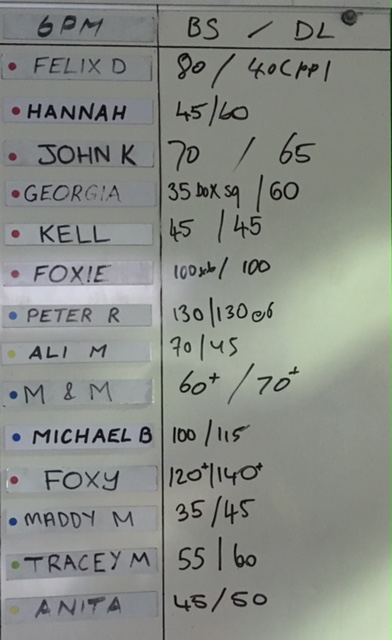 6PM BS / DL
FELIX D 80 / 40(PP)
HANNAH 45/60
JOHN K 70 / 65
GEORGIA 35 box sq / 60
KELL 45 / 45
FOXIE 100 / 100
PETER R 130/130@6
ALI M 70/45
M & M 60+ / 70+
MICHAEL B 100 / 115
FOXY 120+/140+
MADDY M 35/45
TRACEY M 55/60
ANITA 45/50